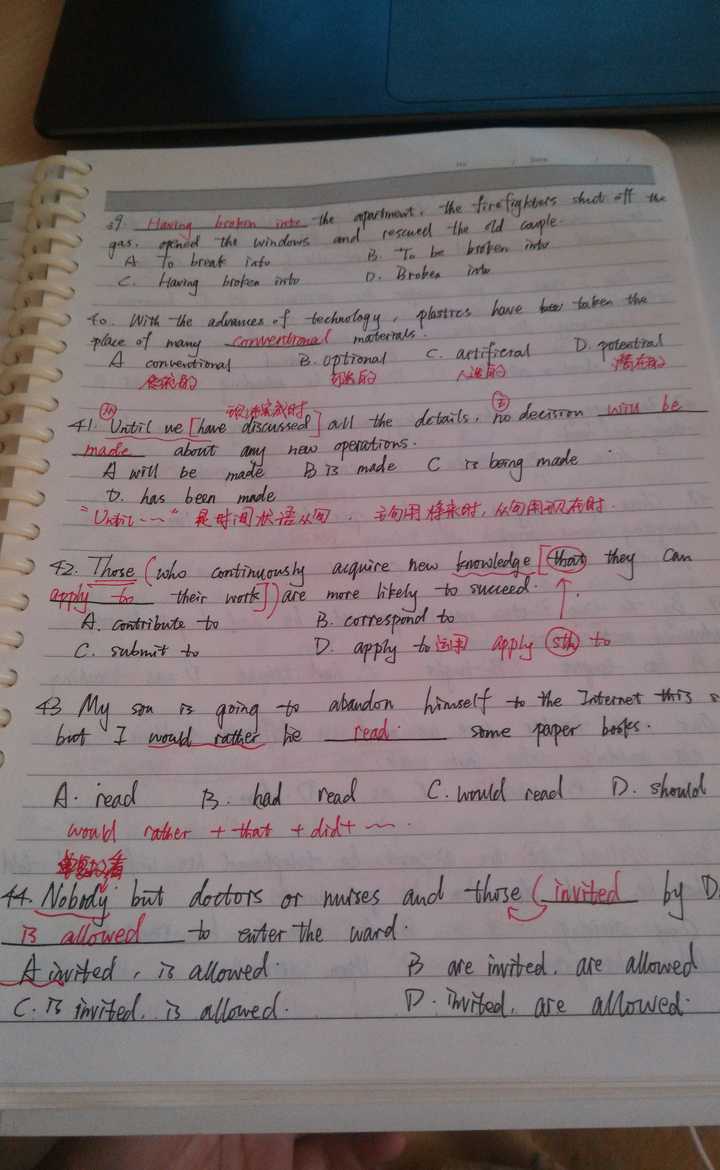 No. Date / /
39. Having broken into the apartment, the firefighters shut off the
gas, opened the windows and rescued the old couple.
A To break into B. To be broken into
C. Having broken into D. Broken into
40. With the advances of technology, plastics have taken the
place of many conventional materials.
A conventional B. optional C. artificial D. potential
传统的 可选的 人造的 潜在的
现在完成时
41. Until we [have discussed] all the details, no decision will be
made about any new operations.
A will be made B is made C is being made
D. has been made
"Until ..." 是时间状语从句. 主句用将来时, 从句用现在时.
42. Those (who continuously acquire new knowledge [that they can
apply to their work]) are more likely to succeed.
A. contribute to B. correspond to
C. submit to D. apply to 运用 apply sth to
43 My son is going to abandon himself to the Internet this
but I would rather he read some paper books.
A. read B. had read C. would read D. should
would rather + that + did + ~
44. Nobody but doctors or nurses and those (invited by D
is allowed to enter the ward.
A invited, is allowed. B are invited, are allowed
C. is invited, is allowed. D. invited, are allowed.